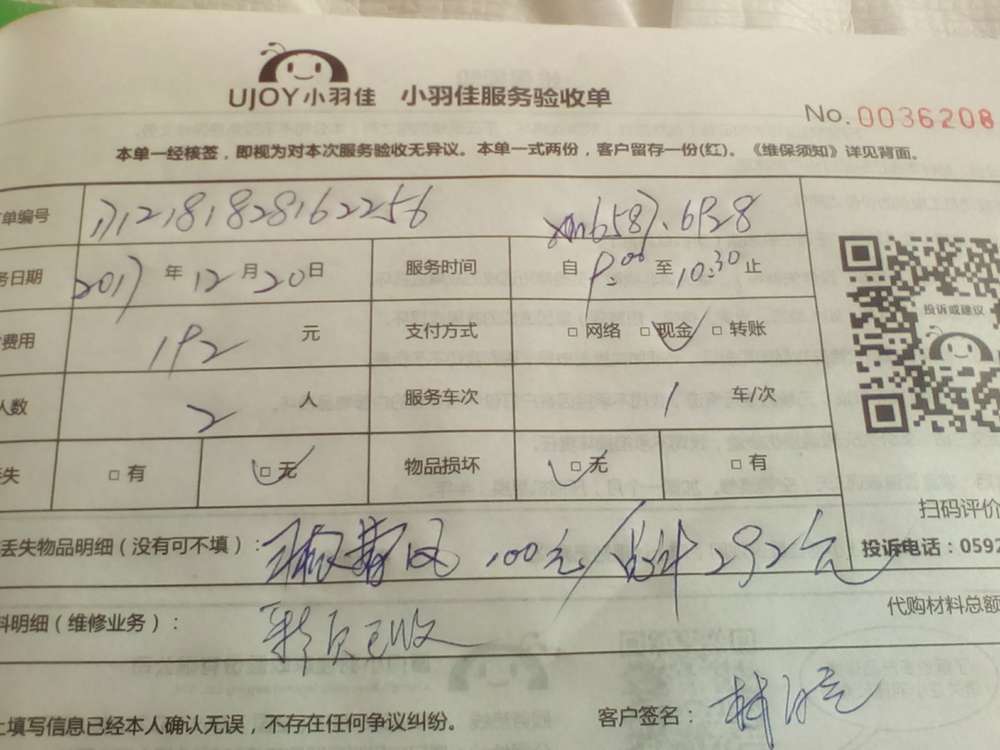 UJOY小羽佳 小羽佳服务验收单
No.0036208
本单一经核签，即视为对本次服务验收无异议。本单一式两份，客户留存一份(红)。《维保须知》详见背面。
单编号 1712181828162256
务日期 2017 年 12 月 20 日 服务时间 自 9:00 至 10:30 止
费用 192 元 支付方式 □ 网络 □ 现金 □ 转账
人数 2 人 服务车次 1 车/次
丢失 □ 有 □ 无 物品损坏 □ 无 □ 有
投诉或建议
扫码评价
投诉电话：0592
丢失物品明细（没有可不填）： 100元/总计292元
代购材料总额
料明细（维修业务）： 款项已收
上填写信息已经本人确认无误，不存在任何争议纠纷。 客户签名： 林